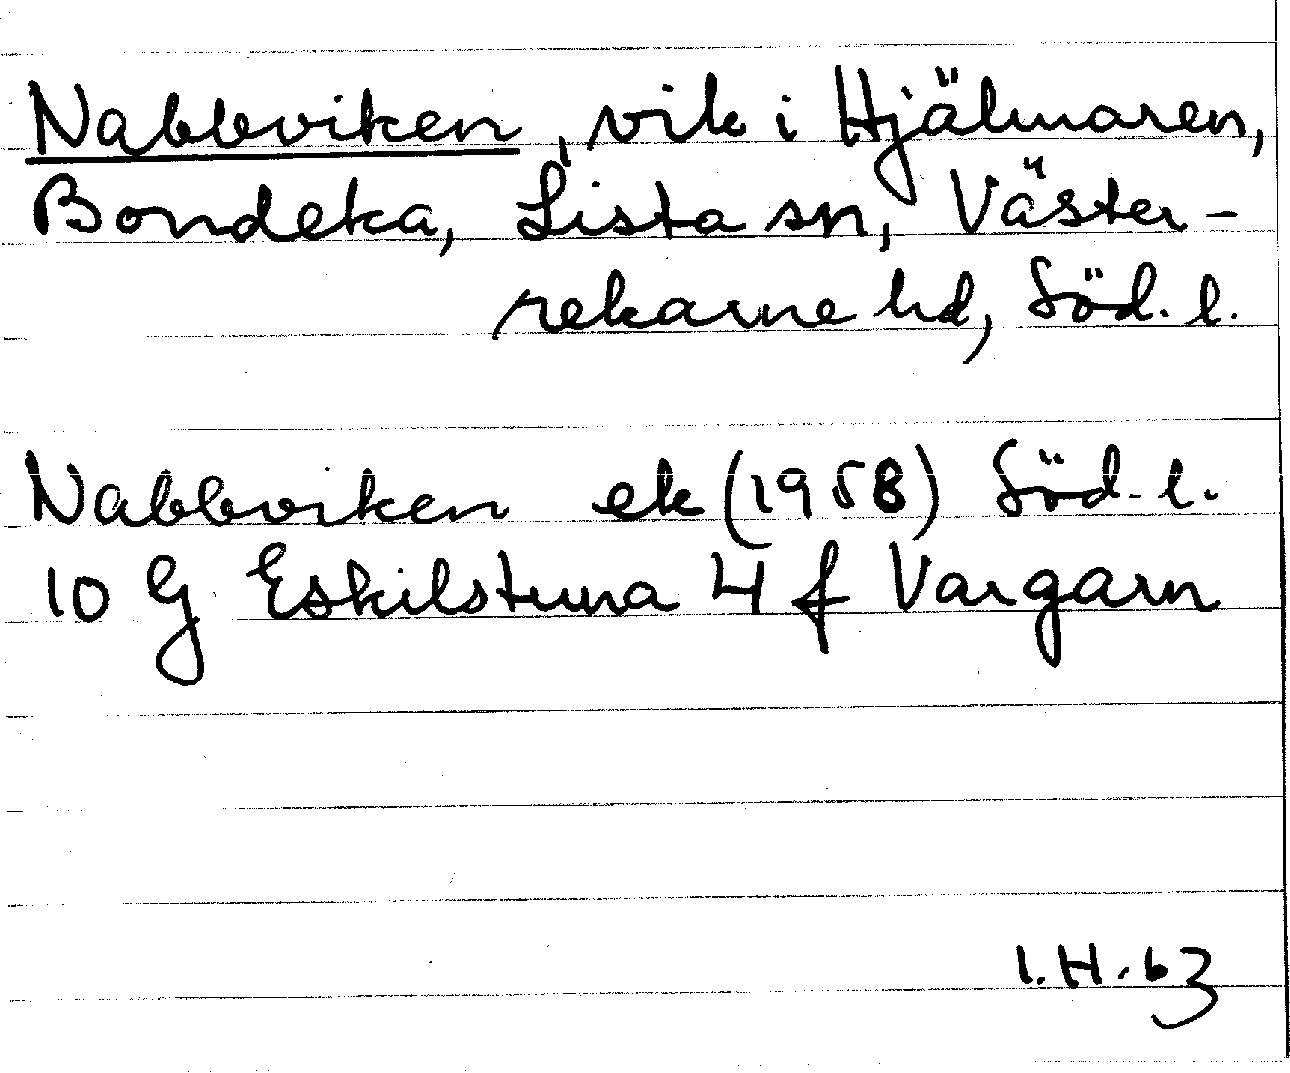 Nabbviken, vik i Hjälmaren,
Bondeka, Lista sn, Väster-
rekarne hd, Söd. l.
Nabbviken ek (1958) Söd. l.
10 G Eskilstuna 4 f Vargarn
I.H. 63